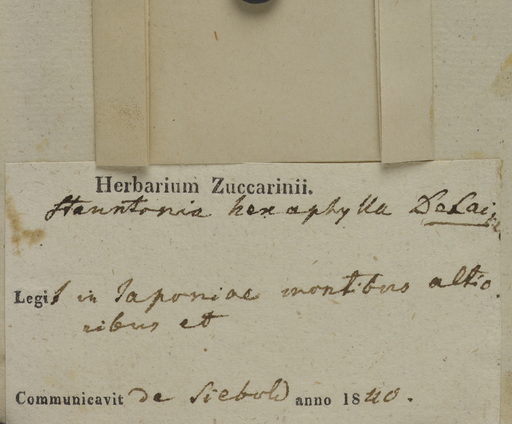 Herbarium Zuccarinii.
Stauntonia hexaphylla DeCai
Legit in Japoniae montibus altio
ribus et
Communicavit de Siebold anno 1840.